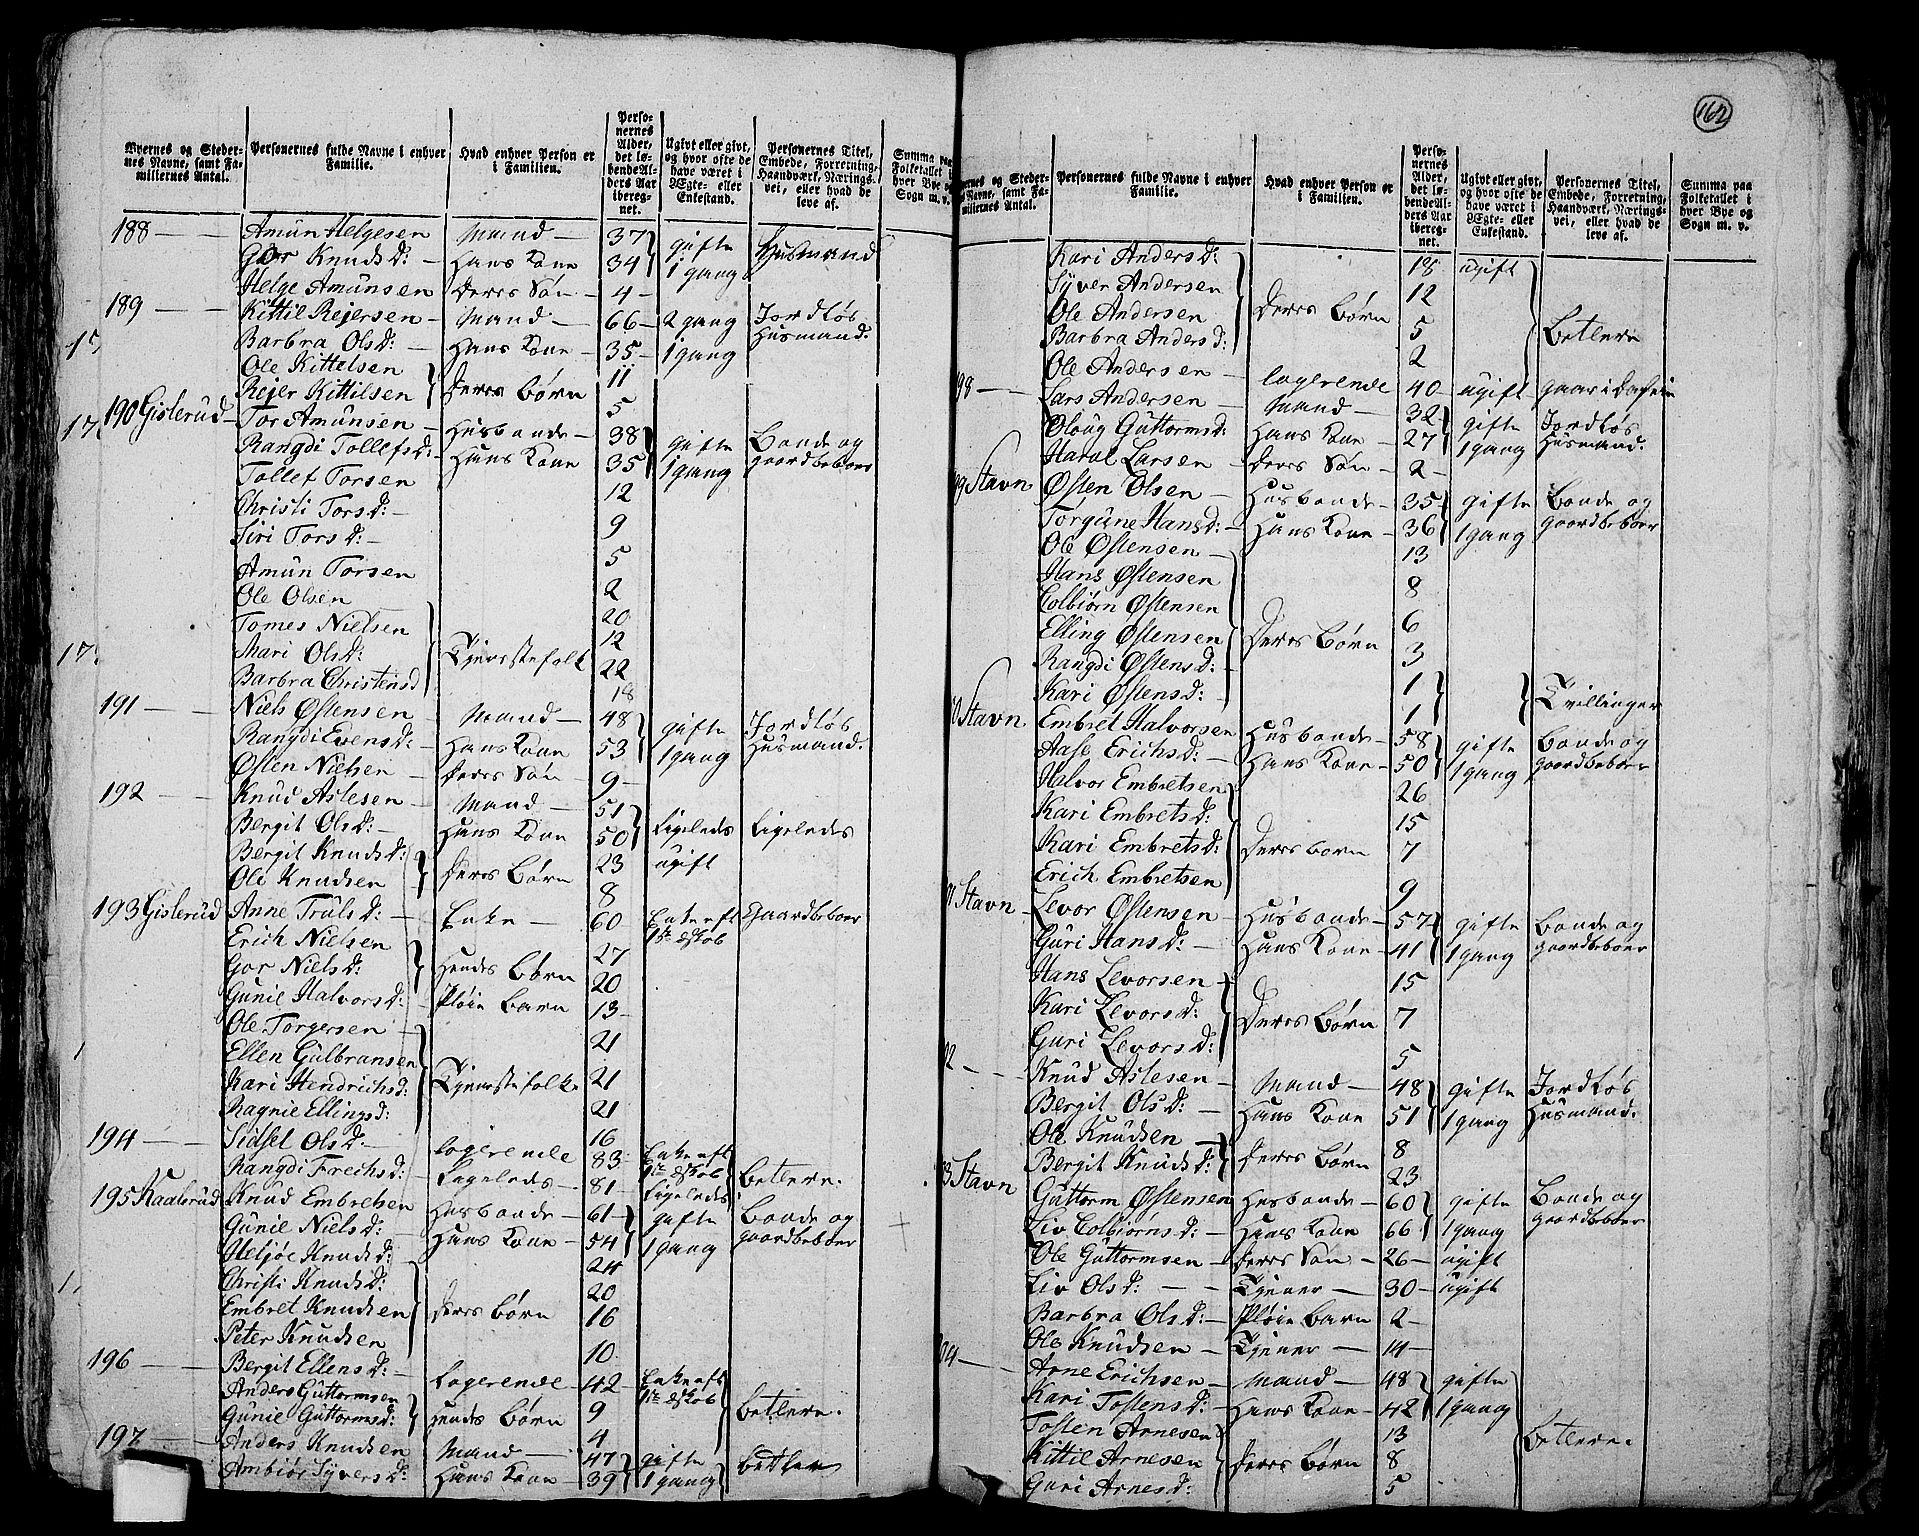 162
Byernes og Stedernes Navne, samt Familiernes Antal. | Personernes fulde Navne i enhver Familie. | Hvad enhver Person er i Familien. | Personernes Alder, det løbende Alders Aar iberegnet. | Ugivt eller givt, og hvor ofte de have været i Ægte- eller Enkestand. | Personernes Titel, Embede, Forretning, Haandværk, Næringsvei, eller hvad de leve af. | Summa paa Folketallet i hver Bye og Sogn m. v.
188 — Amün Helgesen — Mand — 37 gifte Husmand
Gór Knudsd: — Hans Kone 34 1 gang
Helge Amünsen — Deres Søn — 4 —
189 — Kittil Rejersen — Mand — 66 — 2 gang Jordløs
Barbra Olsd: — Hans Kone — 35 — 1 gang Husmand.
Ole Kittelsen 11
Rejer Kittilsen Deres Børn 5
190 Gislerud — Tor Amünsen — Husbonde — 38 gifte Bonde og
Rangdi Tollefsd: — Hans Kone 35 1 gang gaardbeboer
Tollef Torsen 12
Christi Torsd: — 9
Siri Torsd: — 5
Amün Torsen 2
Ole Olsen 20
Tomes Nielsen 12
Mari Olsd: Tjenestefolk 22
Barbra Christensd 18
191 — Niels Østensen — Mand — 48 gifte Jordløs
Rangdi Evensd: — Hans Kone 53 1 gang Husmand.
Østen Nielsen — Deres Søn — 9 —
192 — Knud Aslesen — Mand — 51
Bergit Olsd: — Hans Kone 50 Ligeledes Ligeledes
Bergit Knudsd: 23 ugift
Ole Knudsen Deres Børn 8
193 Gislerud Anne Trulsd: — Enke — 60 Enke eft 1ste Ægtesk. Gaardbeboer
Erich Nielsen 27
Gor Nielsd: Hendes Børn 20
Günil Halvorsd: — Pleie Barn 13 —
Ole Torgersen — 21
Ellen Gülbransen 21
Kari Hendrichsd: Tjenestefolke 21
Ragnil Ellingsd: 16
194 — Sidsel Olsd: — Logerende 83 Enke eft
Rangdi Frechsd: — Ligeleds — 81 — Ligeledes Betlere.
195 Kaalsrud Knud Embretsen Husbonde — 61 — gifte Bonde og
Günil Nielsd: — Hans Kone — 54 1 gang gaardbeboer
Heljøe Knudsd: 24
Christi Knudsd: 20
Embret Knudsen Deres Børn 16
Peter Knudsen 10
196 — Bergit Ellensd: — Logerende — 42 — Enke eft
Anders Guttormsen 9
Günil Guttormsd: Hendes Børn 4 Betlere.
197 — Anders Knudsen Mand — 47 gifte
Ambiør Syversd: Hans Kone — 39 1 gang Betler
Byernes og Stedernes Navne, samt Familiernes Antal. | Personernes fulde Navne i enhver Familie. | Hvad enhver Person er i Familien. | Personernes Alder, det løbende Alders Aar iberegnet. | Ugivt eller givt, og hvor ofte de have været i Ægte- eller Enkestand. | Personernes Titel, Embede, Forretning, Haandværk, Næringsvei, eller hvad de leve af. | Summa paa Folketallet i hver Bye og Sogn m. v.
Kari Andersd: 18 ugift
Syver Andersen 12
Ole Andersen Deres Børn 5 Betlere
Barbra Andersd: 2
98 — Ole Andersen — Logerende 40 ugift
Lars Andersen — Mand — 32 gifte Jordløs
Olaug Guttormsd: Hans Kone — 27 1 gang Husmand.
Haral Larsen — Deres Søn — 2 —
99 Stavn Østen Olsen — Husbonde — 35 gifte Bonde og
Torgune Hansd: — Hans Kone — 36 1 gang gaardbeboer
Ole Østensen — 13
Hans Østensen 8
Colbiørn Østensen 6
Elling Østensen Deres Børn 3
Rangdi Østensd: 1
Kari Østensd: — 1 Tvillinger
0 Stavn Embret Halvorsen Husbonde — 58 gifte Bonde og
Aase Erichsd: — Hans Kone — 50 1 gang gaardbeboer
Halvor Embretsen 26
Kari Embretsd: 15
Kari Embretsd: Deres born 7
Erich Embretsen 9
01 Stavn — Levor Østensen — Husbonde — 57 gifte Bonde og
Guri Hansd: — Hans Kone — 41 1 gang gaardbeboer
Hans Levorsen 15
Kari Levorsd: Deres Børn 7
Guri Levorsd: 5
02 — Knud Aslesen — Mand — 48 gifte Jordløs
Bergit Olsd: — Hans Kone 51 1 gang Husmand.
Ole Knudsen 8
Bergit Knudsd: Deres Børn 23
03 Stavn Guttorm Østensen Husbonde — 60 gifte Bonde og
Liv Colbiørnsd: — Hans Kone 66 1 gang gaardbeboer
Ole Guttormsen — Deres Søn — 26 — ugift
Liv Olsd: — Tjener — 30 — ugift
Barbra Olsd: — Pleie Barn 2 —
Ole Knudsen — Tjener — 14 —
04 — Arne Erichsen — Mand — 48 gifte
Kari Tostensd: — Hans Kone — 42 1 gang
Tosten Arnesen 13 Betlere.
Kittil Arnesen Deres Børn 8
Guri Arnesd: 5